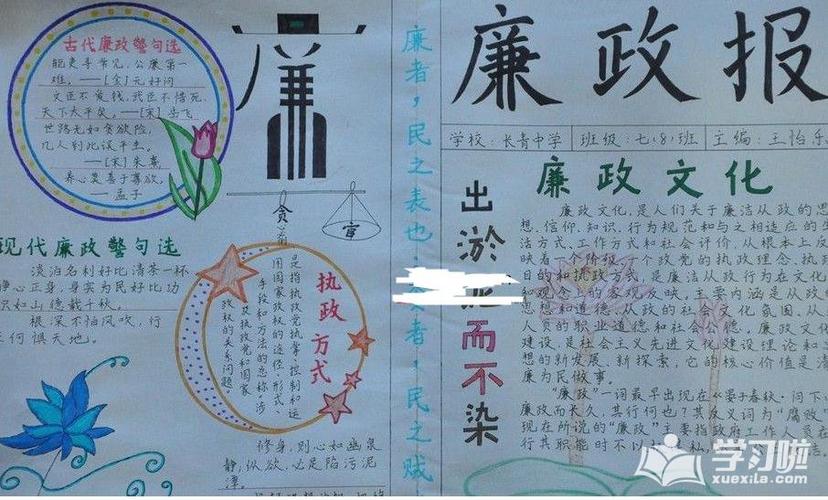 古代廉政警句选
能吏寻常见,公廉第一
难。——[金]元好问
文臣不爱钱,武臣不惜死,
天下太平矣。——[宋]岳飞
世路无如贪欲险,
几人到此误平生。
——[宋]朱熹
养心莫善于寡欲。
——孟子
现代廉政警句选
淡泊名利好比清茶一杯
静心正身,身实为民好比功
识如山德载千秋。
根深不怕风吹,行
何惧天地。
廉
贪
官
执政方式
是指执政党执掌、控制和运
用国家政权的途径、形式、
手段和方法的总称,涉
及执政党和国家
政权的关系问题。
修身,则心如幽泉
静,纵欲,心是陷污泥
潭。
廉者,民之表也
者,民之贼
廉政报
学校:长青中学
班级:七(8)班
主编:王怡乐
出淤
而不染
廉政文化
廉政文化,是人们关于廉洁从政的思
想、信仰、知识、行为规范和与之相适应的生
活方式、工作方式和社会评价,从根本上反
映着一个阶级、一个政党的执政理念、执政
目的和执政方式,是廉洁从政行为在文化
和观念上的客观反映,主要内涵是从政
思想和道德、从政的社会文化氛围、从
人员的职业道德和社会公德。廉政文化
建设,是社会主义先进文化建设理论和
想的新发展、新探索,它的核心价值是清
廉为民做事。
“廉政”一词最早出现在《晏子春秋·问下
廉政而长久,其行何也?其反义词为“腐败”
现在所说的“廉政”主要指政府工作人员在
行其职能时不以
私,
学习啦
xuexila.com